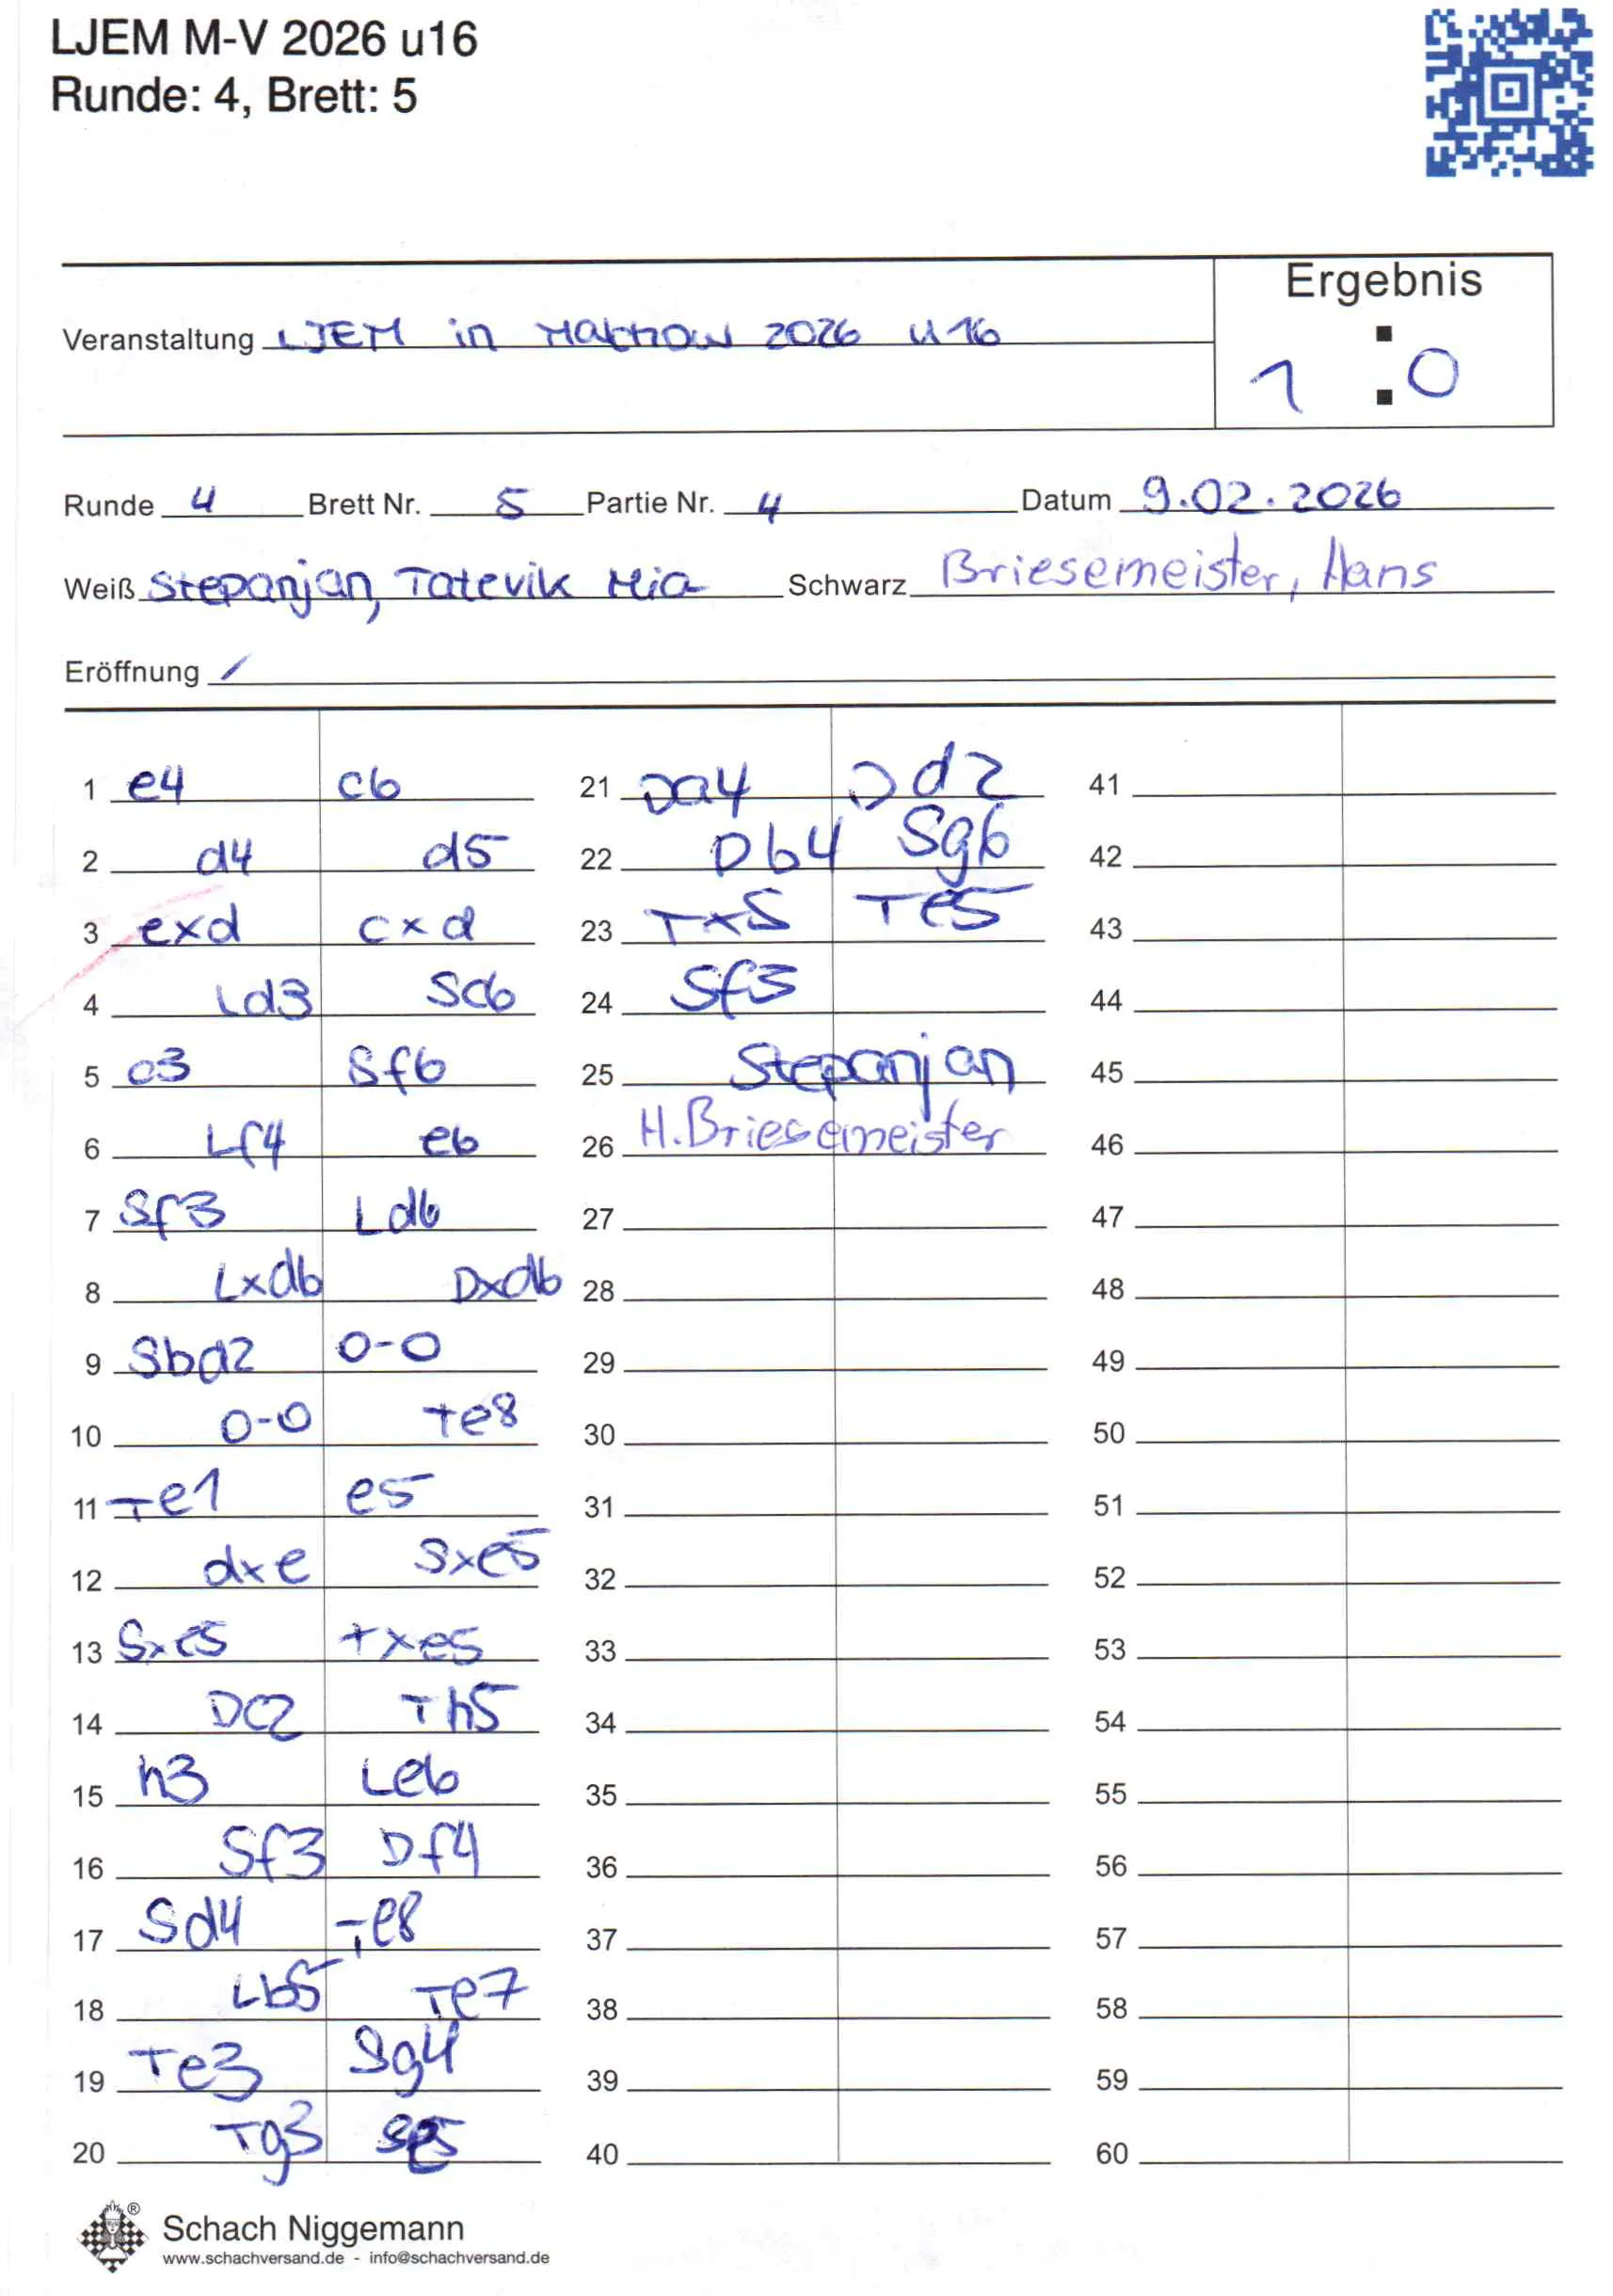 LJEM M-V 2026 u16
Runde: 4, Brett: 5
Ergebnis
Veranstaltung LJEM in Malchow 2026 u16
1 : 0
Runde 4 Brett Nr. 5 Partie Nr. 4 Datum 9.02.2026
Weiß Stepanjan, Tatevik Mia Schwarz Briesemeister, Hans
Eröffnung /
1 e4 c6
2 d4 d5
3 exd cxd
4 Ld3 Sc6
5 c3 Sf6
6 Lf4 e6
7 Sf3 Ld6
8 Lxd6 Dxd6
9 Sbd2 0-0
10 0-0 Te8
11 Te1 e5
12 dxe Sxe5
13 Sxe5 Txe5
14 Dc2 Th5
15 h3 Le6
16 Sf3 Df4
17 Sd4 Te8
18 Lb5 Te7
19 Te3 Sg4
20 Tg3 Se5
21 Da4 Dd2
22 Db4 Sg6
23 TxS Te5
24 Sf3
25 Stepanjan
26 H.Briesemeister
27
28
29
30
31
32
33
34
35
36
37
38
39
40
41
42
43
44
45
46
47
48
49
50
51
52
53
54
55
56
57
58
59
60
®
Schach Niggemann
www.schachversand.de - info@schachversand.de